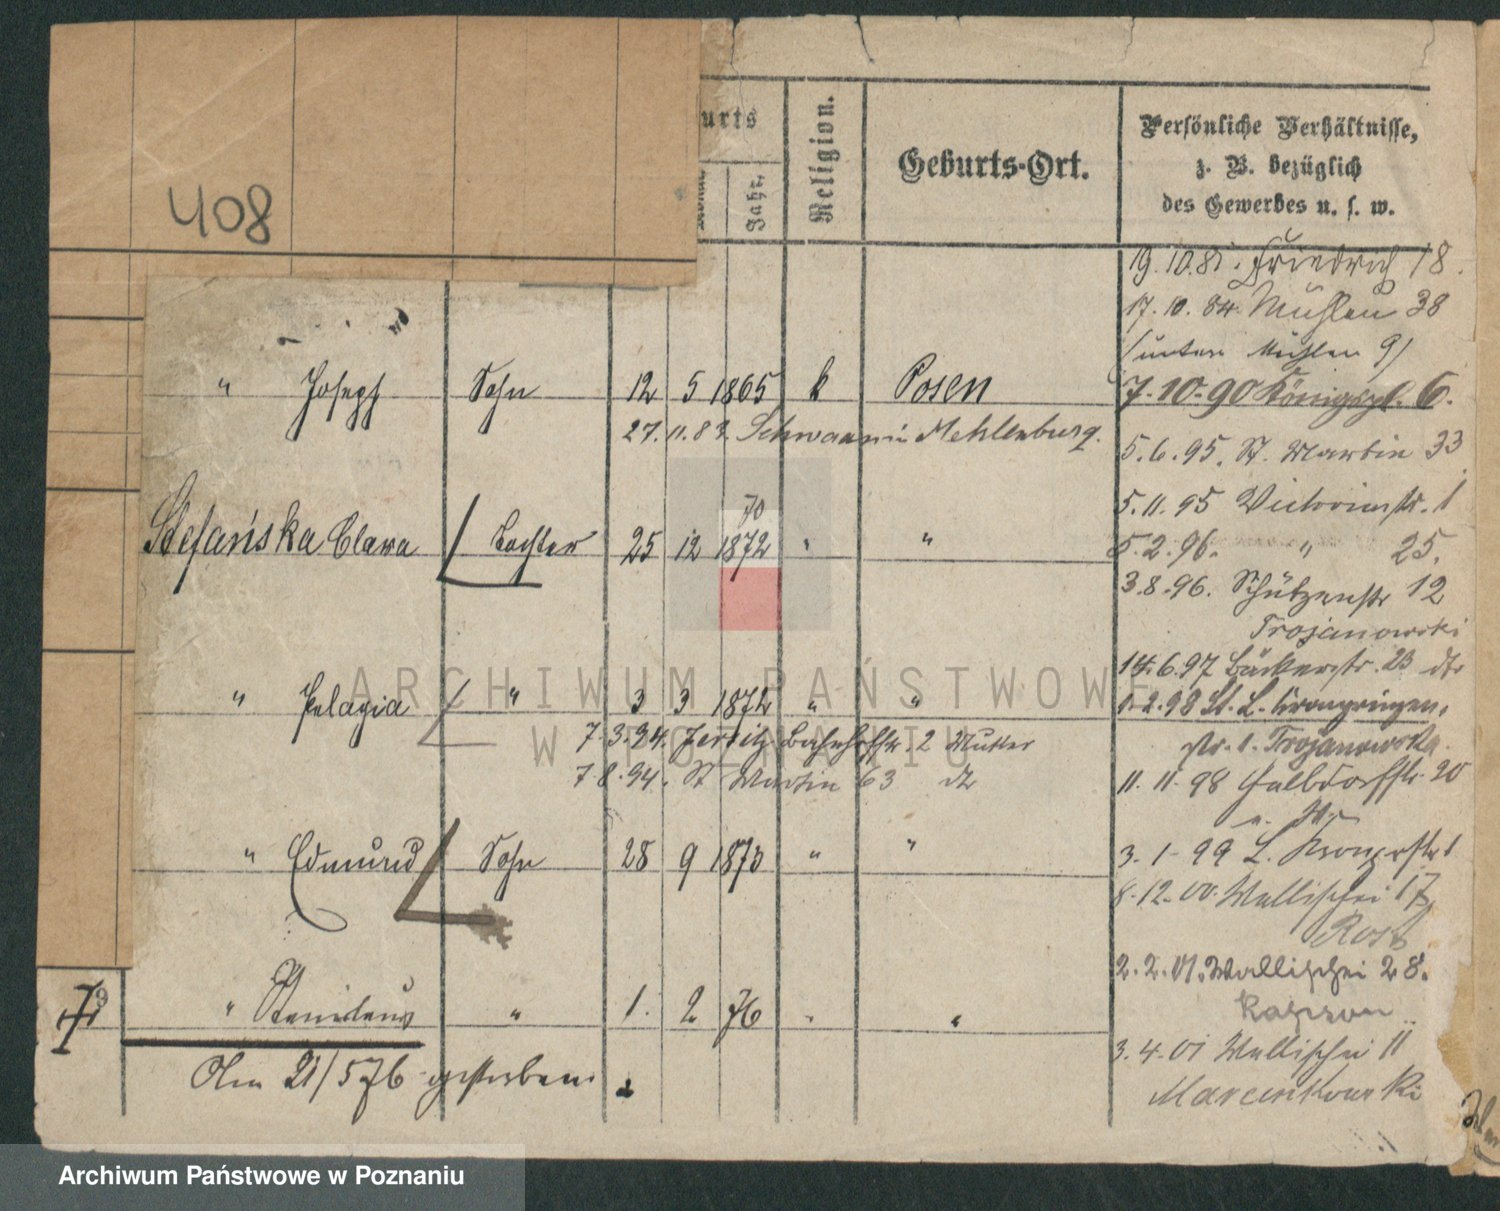 408
urts
Jahr.
Religion.
Geburts-Ort.
Persönliche Verhältnisse,
z. B. bezüglich
des Gewerbes u. s. w.
19.10.81. Friedrich 18.
17.10.84. Mühlen 38
(unten Mühlen 9)
" Joseph Sohn 12 5 1865 k Posen
7.10.90 Königspl. 6.
27.11.83. Schwaan in Mehlenburg.
5.6.95. St. Martin 33
5.11.95 Victoriastr. 1
70
Stefańska Clara Tochter 25 12 1872 " "
5.2.96. " 25.
3.8.96. Schützenstr 12
Trojanowski
14.6.97 Bäckerstr. 23 dtr
" Pelagia " 3 3 1872 " "
1.2.98 St. L. Kronprinzen,
str. 1. Trojanowska.
7.3.94. Jersitz Bahnhofstr. 2 Mutter
7.8.94. St Martin 63 dtr
11.11.98 Halbdorfstr. 20
" Edmund Sohn 28 9 1873 " "
3.1.99 L. 1
8.12.00. Wallischei 17
Rost
2.2.01. Wallischei 28.
" Stanislaus " 1. 2 76 " "
3.4.01 Wallischei 11
Marcinkowski
Am 21/5 76 gestorben.
ARCHIWUM PAŃSTWOWE
W POZNANIU
Archiwum Państwowe w Poznaniu